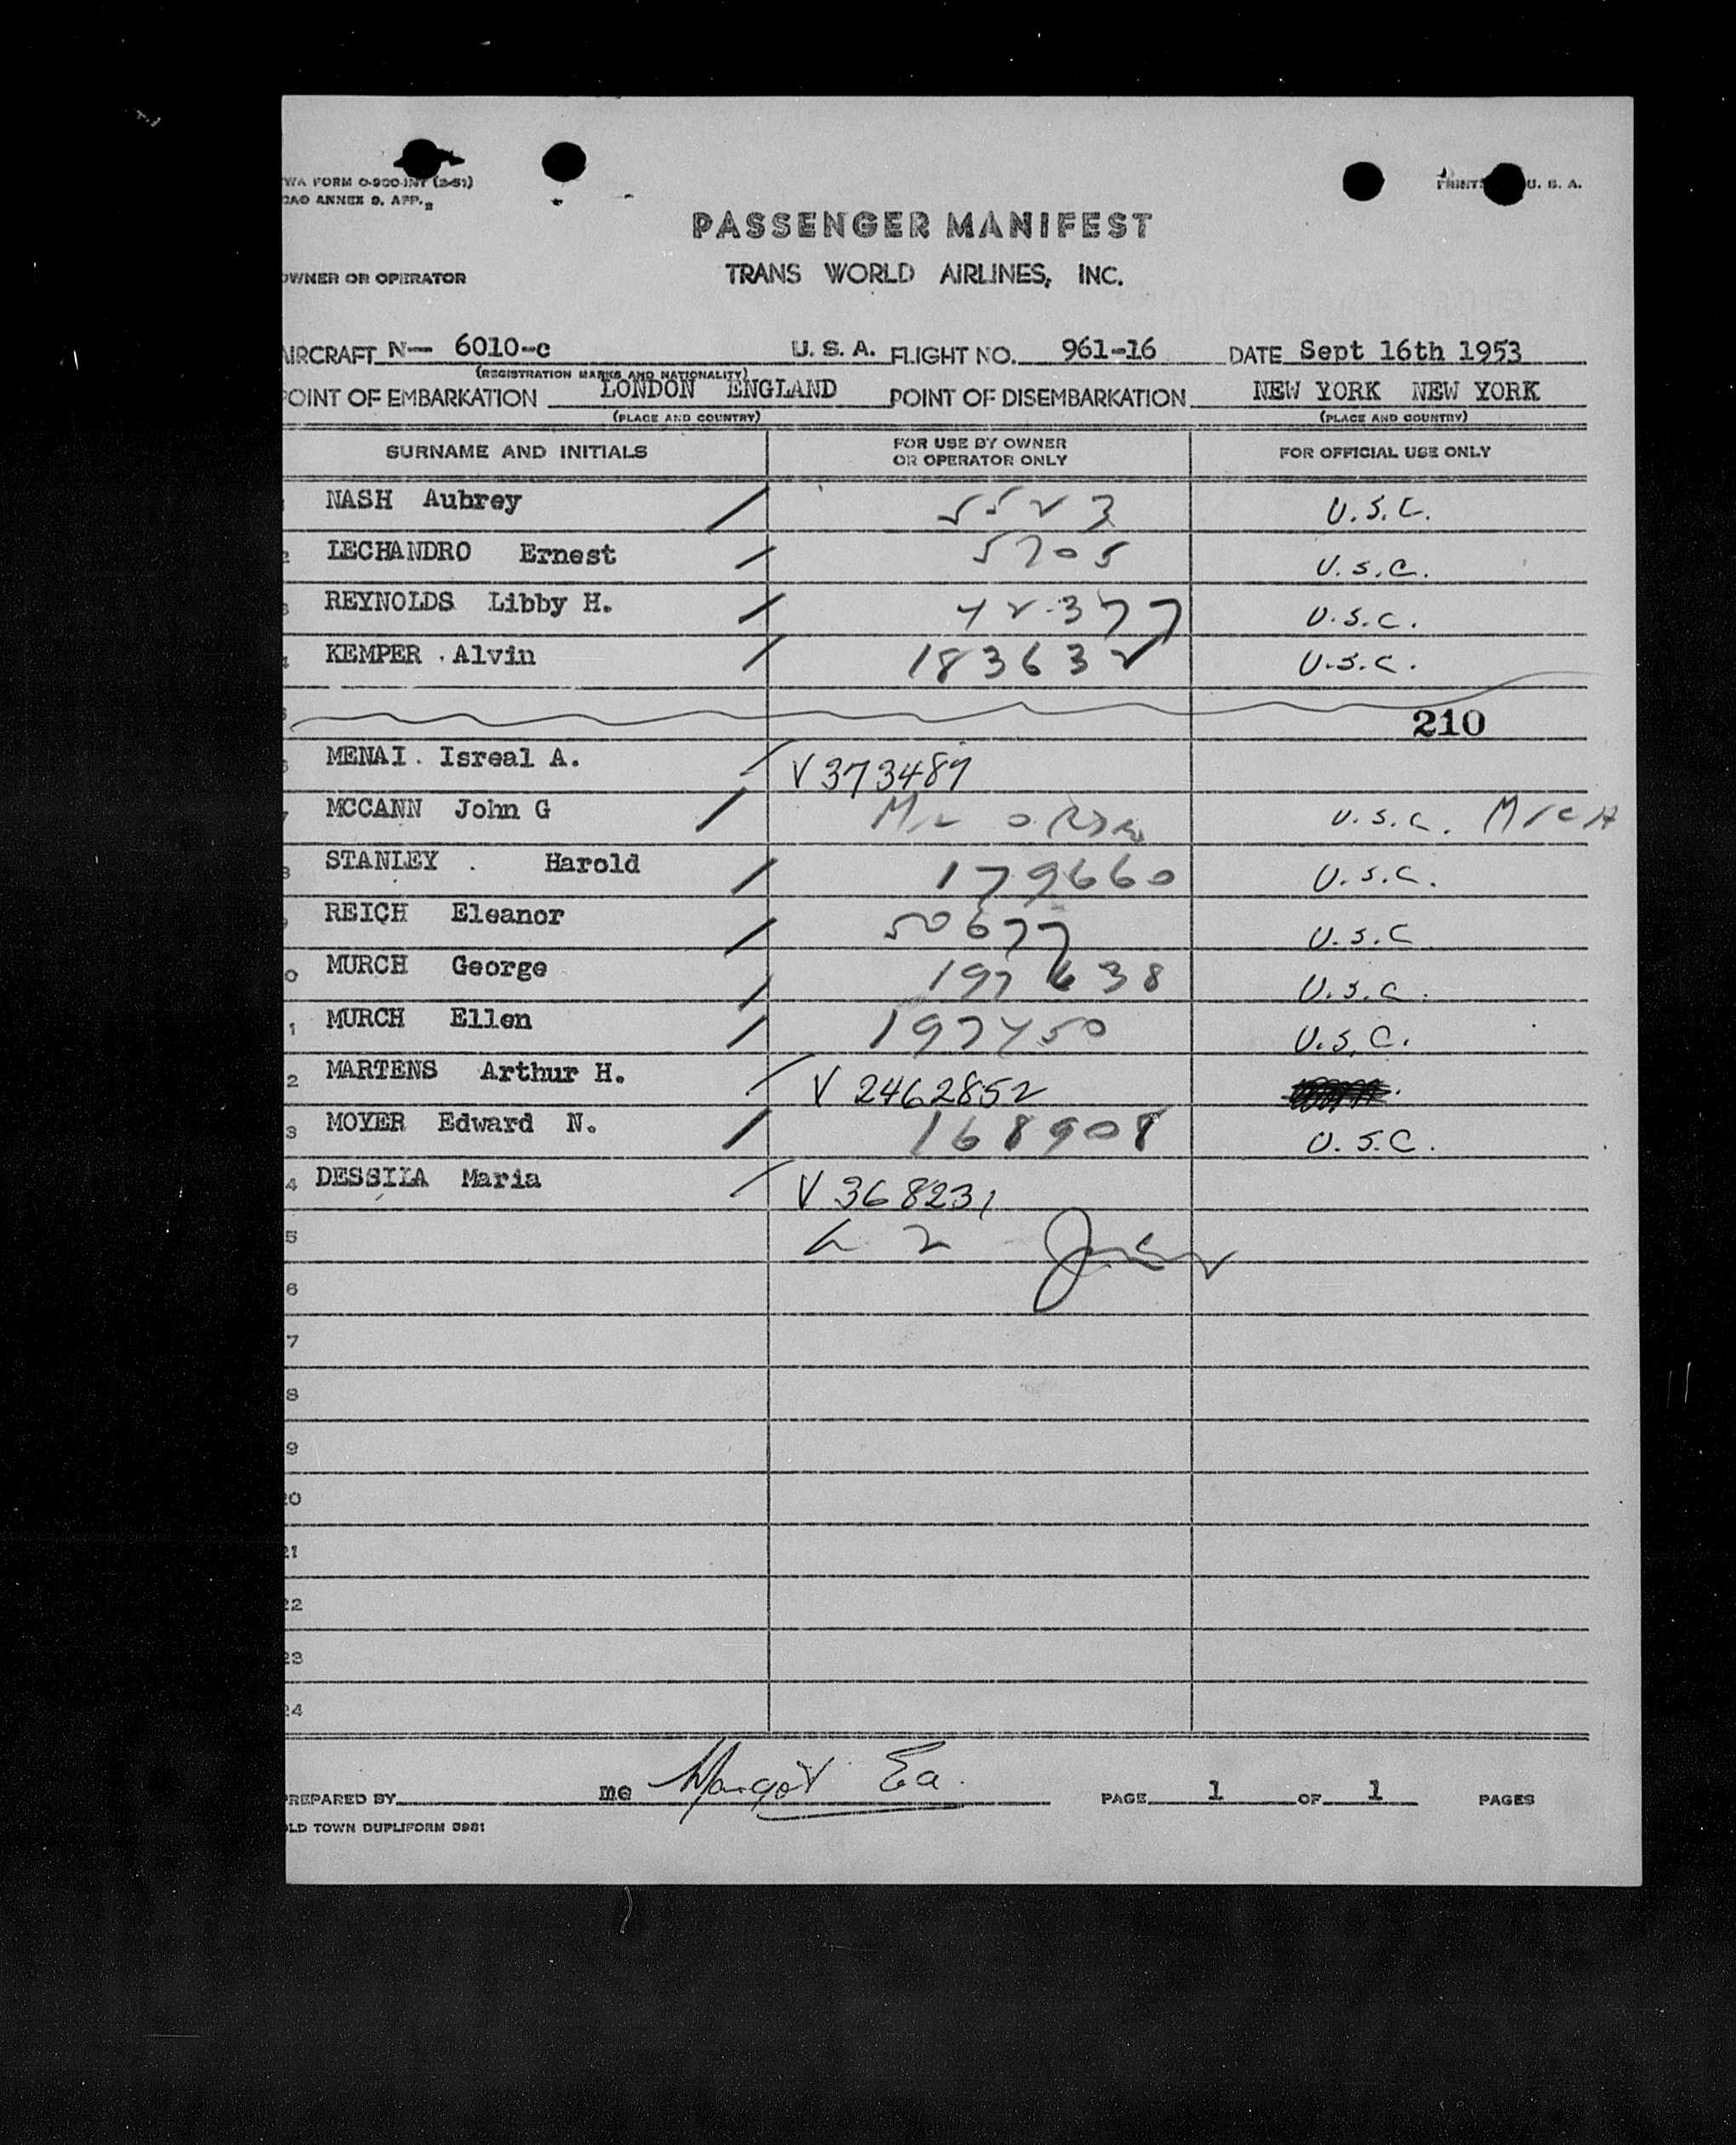 TWA FORM O-900-INT (2-51)
CAO ANNEX 9. APP. 2
U. S. A.
PASSENGER MANIFEST
OWNER OR OPERATOR TRANS WORLD AIRLINES, INC.
AIRCRAFT N— 6010-c U. S. A. FLIGHT NO. 961-16 DATE Sept 16th 1953
(REGISTRATION MARKS AND NATIONALITY)
POINT OF EMBARKATION LONDON ENGLAND POINT OF DISEMBARKATION NEW YORK NEW YORK
(PLACE AND COUNTRY) (PLACE AND COUNTRY)
SURNAME AND INITIALS FOR USE BY OWNER OR OPERATOR ONLY FOR OFFICIAL USE ONLY
NASH Aubrey / 5523 U.S.C.
2 LECHANDRO Ernest / 5705 U.S.C.
3 REYNOLDS Libby H. / 42377 U.S.C.
4 KEMPER . Alvin / 183632 U.S.C.
210
MENAI. Isreal A. / V 373487
7 MCCANN John G / U.S.C. MICH
8 STANLEY . Harold / 179660 U.S.C.
REICH Eleanor / 50677 U.S.C
0 MURCH George / 197638 U.S.C.
1 MURCH Ellen / 197450 U.S.C.
2 MARTENS Arthur H. / V 2462852
3 MOYER Edward N. / 168908 U.S.C.
4 DESSILA Maria / V 368231
5
6
7
8
9
20
21
22
23
24
PREPARED BY me Margot Ea. PAGE 1 OF 1 PAGES
OLD TOWN DUPLIFORM 8981